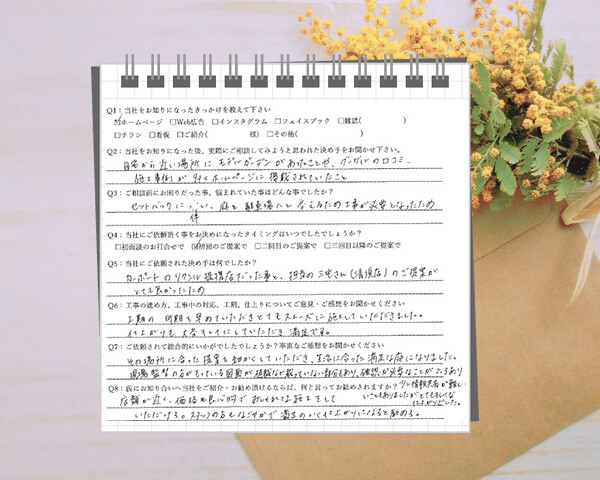 Q1：当社をお知りになったきっかけを教えて下さい
☑ホームページ　□Web広告　□インスタグラム　□フェイスブック　□雑誌(　　　)
□チラシ　□看板　□ご紹介(　　　様)　□その他(　　　)
Q2：当社をお知りになった後、実際にご相談してみようと思われた決め手をお聞かせ下さい。
自宅から近い場所にモデルガーデンがあったことや、グーグルの口コミ、
施工事例が多くホームページに掲載されていたこと
Q3：ご相談前にお困りだった事、悩まれていた事はどんな事でしたか？
セットバックに伴い、庭を駐車場へと変えるため工事が必要となったため
伴
Q4：当社にご依頼頂く事をお決めになったタイミングはいつでしたでしょうか？
□初面談のお打合せで　☑初回のご提案で　□二回目のご提案で　□三回目以降のご提案で
Q5：当社にご依頼された決め手は何でしたか？
カーポートのリクシル提携店だった事と、担当の三宅さん(清須店)のご提案が
とても良かったため
Q6：工事の進め方、工事中の対応、工期、仕上りについてご意見・ご感想をお聞かせください
工期の時期を早めていただきとてもスムーズに施工していただきました。
仕上がりも大変キレイにしていただき満足です。
Q7：ご依頼されて総合的にいかがでしたでしょうか？率直なご感想をお聞かせください
その場所に合った提案を細かくしていただき、生活に合った満足な庭になりました。
現場監督の方がもっている図面が詳細など載っていない部分もあり、確認が必要なことが多々あり
Q8：仮にお知り合いへ当社をご紹介・お勧め頂けるならば、何と言ってお勧めされますか？
少し情報共有が難しい
いこともありましたがとてもキレイな
仕上がりでした。
店舗が近く、価格も良心的でおしゃれな施工をして
いただける。スタッフの方もなごやかで満足のいく仕上がりになると勧める。